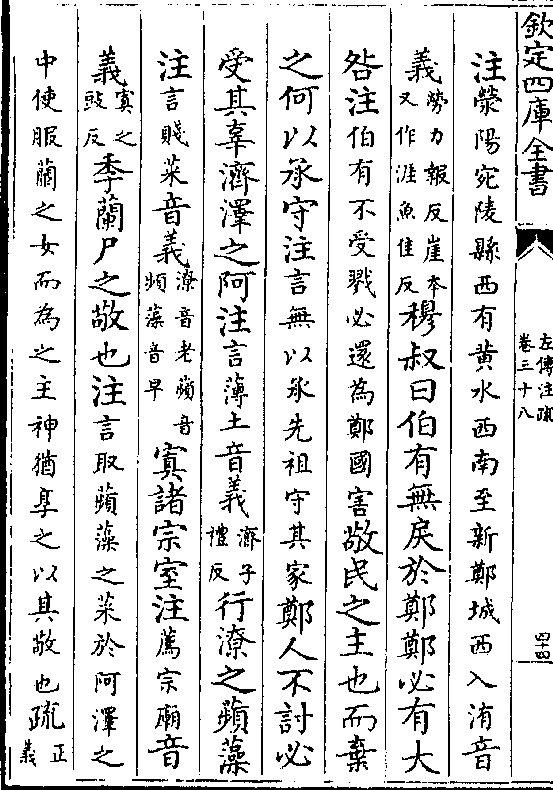 欽定四庫全書
左傳注疏
卷三十八
四十四
注滎陽宛陵縣西有黄水西南至新鄭城西入洧音
義勞力報反崖本又作涯魚佳反穆叔曰伯有無戾於鄭鄭必有大
咎注伯有不受戮必還為鄭國害敬民之主也而棄
之何以承守注言無以承先祖守其家鄭人不討必
受其辜濟澤之阿注言薄土音義濟子禮反行潦之蘋藻
注言賤菜音義潦音老蘋音頻藻音早寘諸宗室注薦宗廟音
義寘之豉反季蘭尸之敬也注言取蘋藻之菜於阿澤之
中使服蘭之女而為之主神猶享之以其敬也疏正義